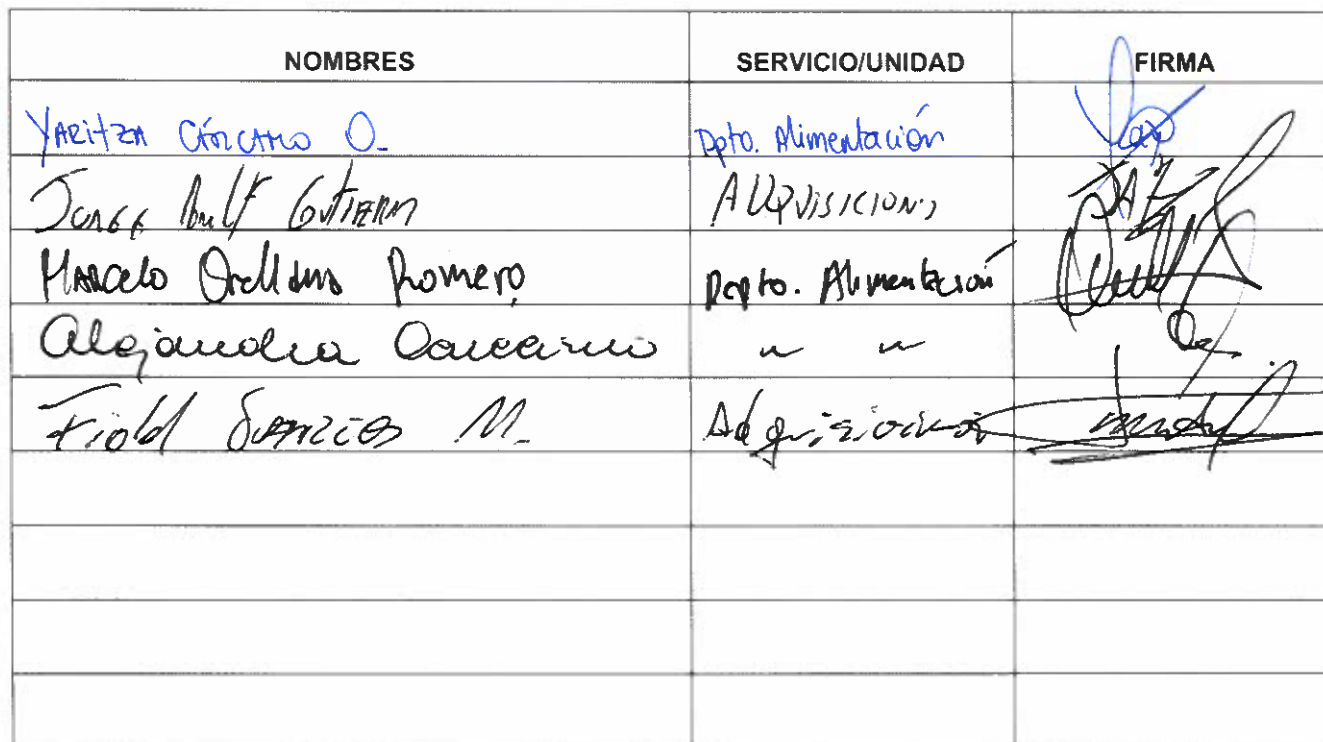 NOMBRES SERVICIO/UNIDAD FIRMA
YARitzA CÁRCAMO O. Dpto. Alimentación
JORGE GUTIERREZ ADQUISICIONES
MARcelo Orellana Romero Depto. Alimentación
Alejandra Carcamo " "
M. Adquisiciones